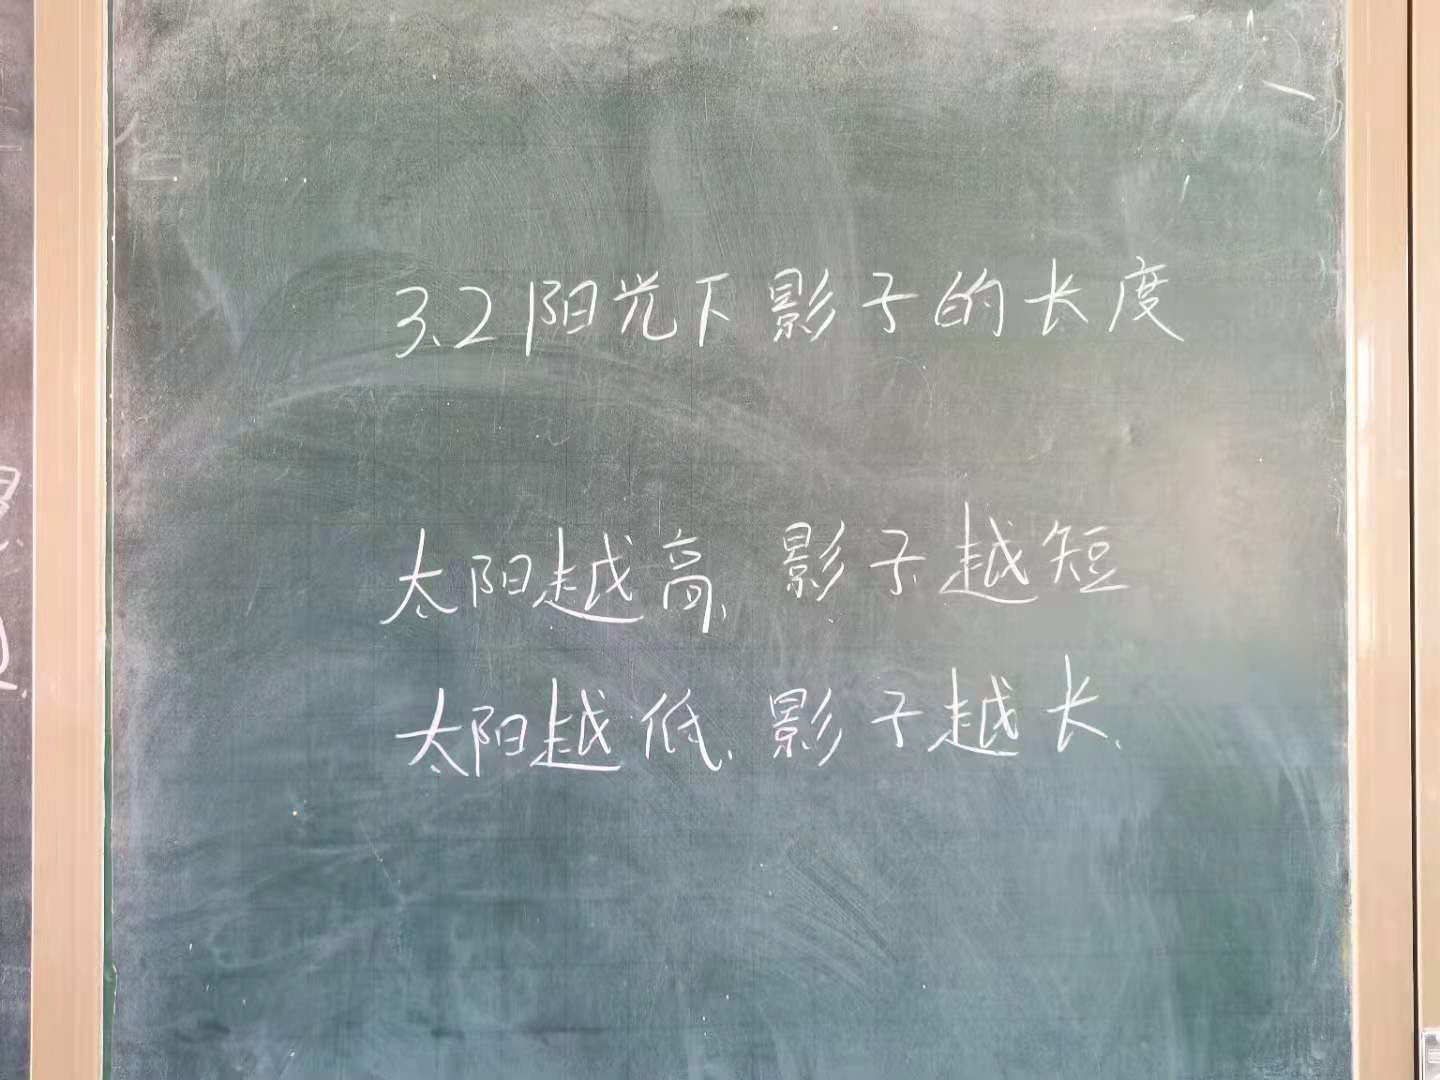 3.2阳光下影子的长度
太阳越高、影子越短
太阳越低、影子越长、